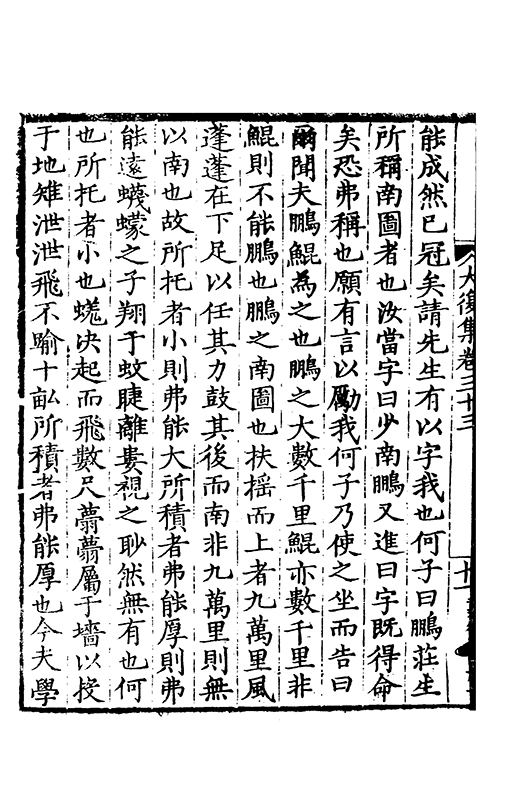 能成然已冠矣請先生有以字我也何子曰鵬莊生
所稱南圖者也汝當字曰少南鵬又進曰字既得命
矣恐弗稱也願有言以勵我何子乃使之坐而告曰
爾聞夫鵬鯤為之也鵬之大數千里鯤亦數千里非
鯤則不能鵬也鵬之南圖也扶摇而上者九萬里風
蓬蓬在下足以任其力鼓其後而南非九萬里則無
以南也故所托者小則弗能大所積者弗能厚則弗
能遠蠛蠓之子翔于蚊睫離婁視之眇然無有也何
也所托者小也蟣決起而飛數尺薨薨屬于墻以投
于地雉泄泄飛不踰十畝所積者弗能厚也今夫學
大復集卷三十三
十一